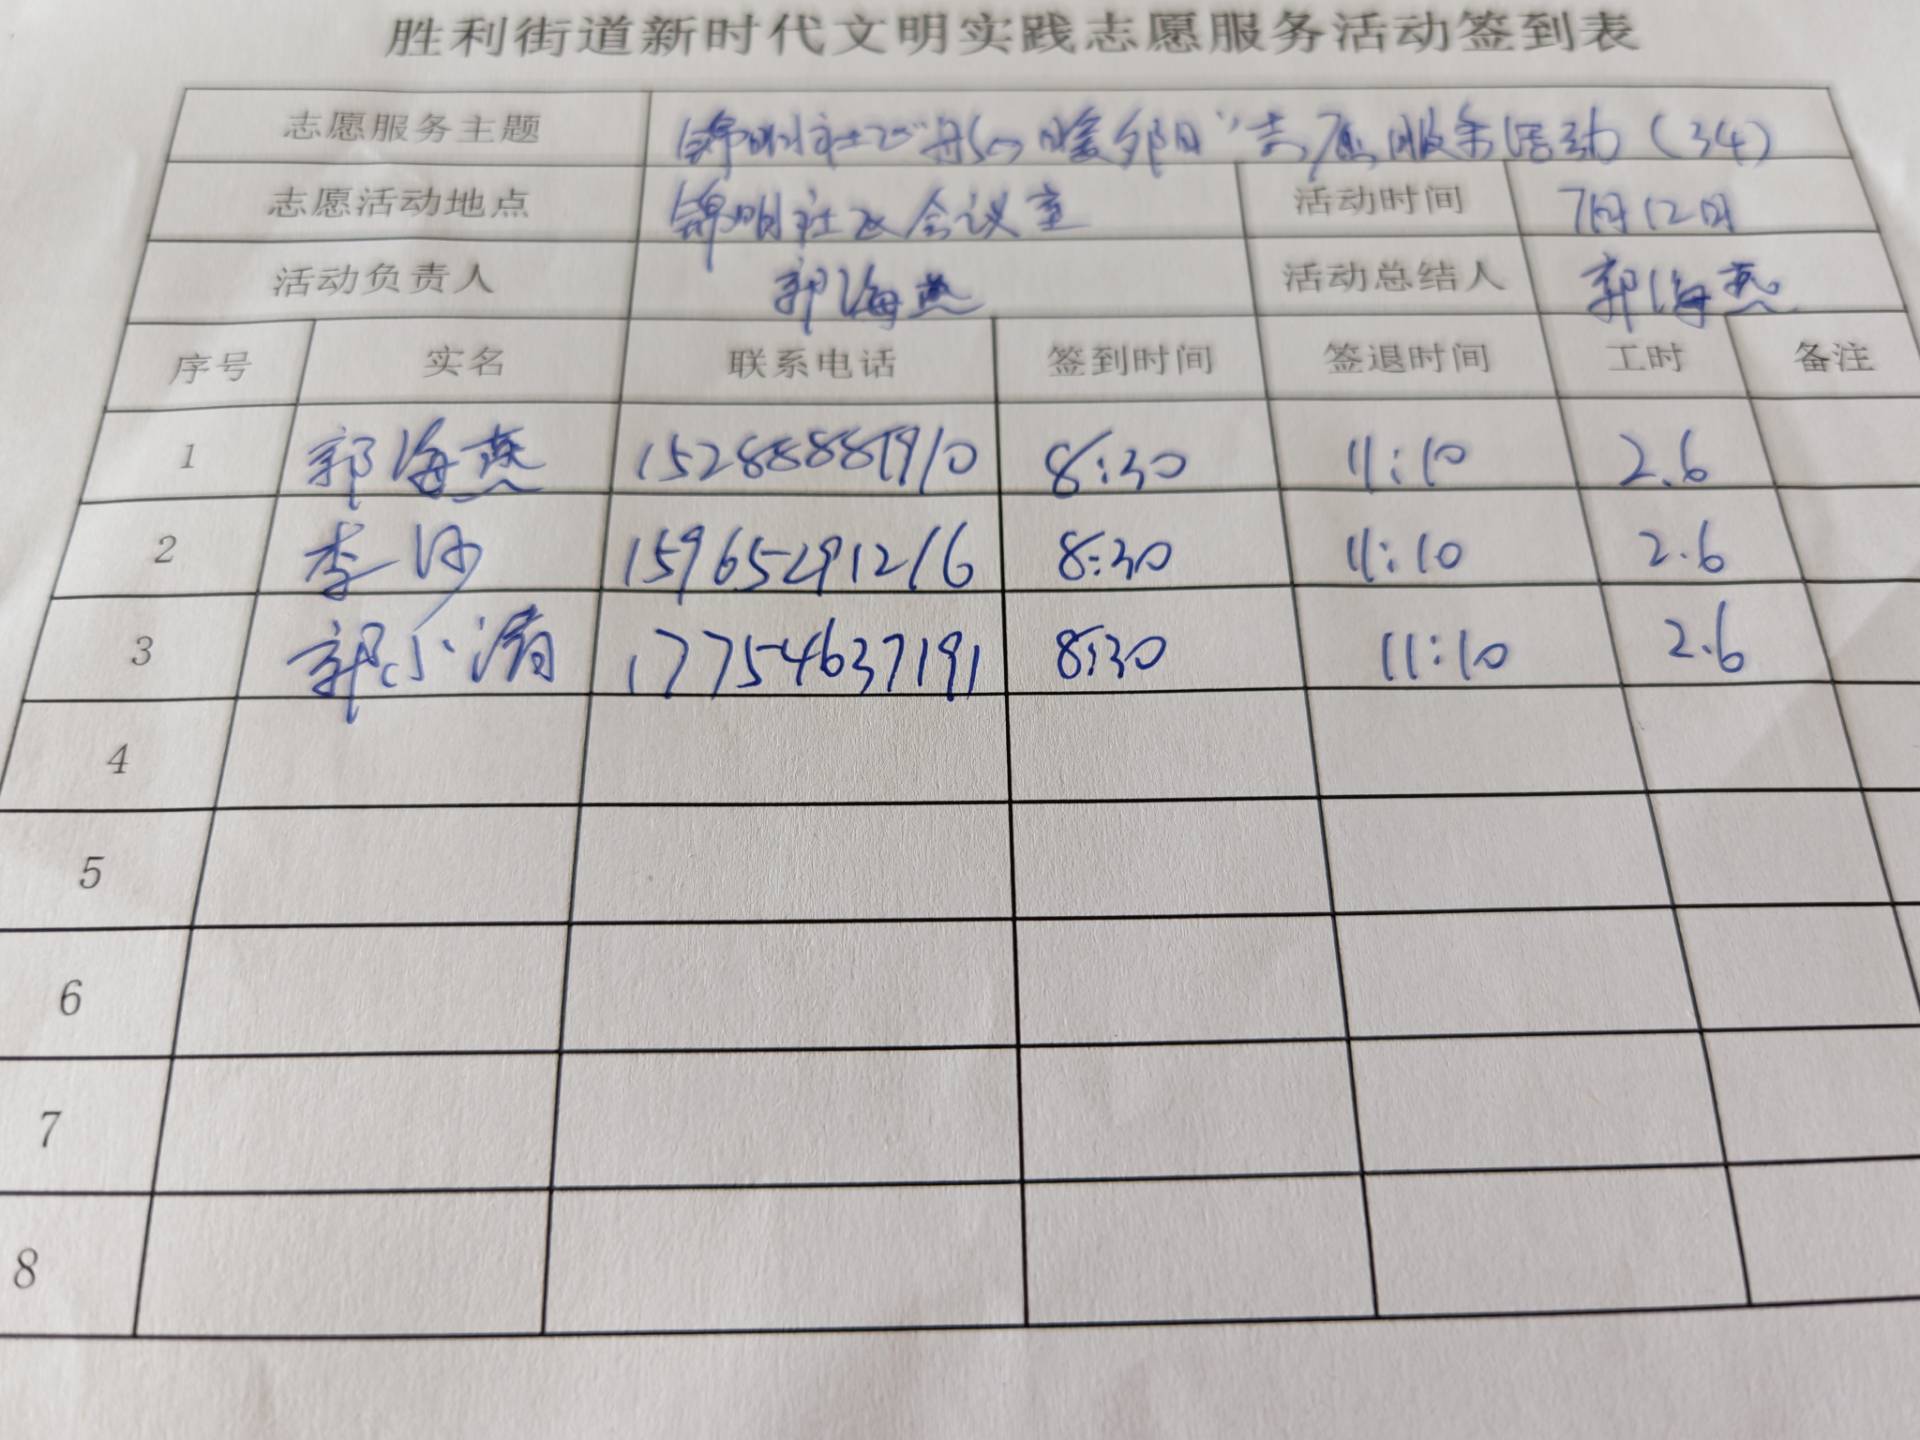 胜利街道新时代文明实践志愿服务活动签到表
志愿服务主题 锦明社区"丹心暖夕阳"志愿服务活动(34)
志愿活动地点 锦明社区会议室 活动时间 7月12日
活动负责人 郭海燕 活动总结人 郭海燕
序号 实名 联系电话 签到时间 签退时间 工时 备注
1 郭海燕 15288881910 8:30 11:10 2.6
2 李 15965291216 8:30 11:10 2.6
3 郭小清 17754637191 8:30 11:10 2.6
4
5
6
7
8